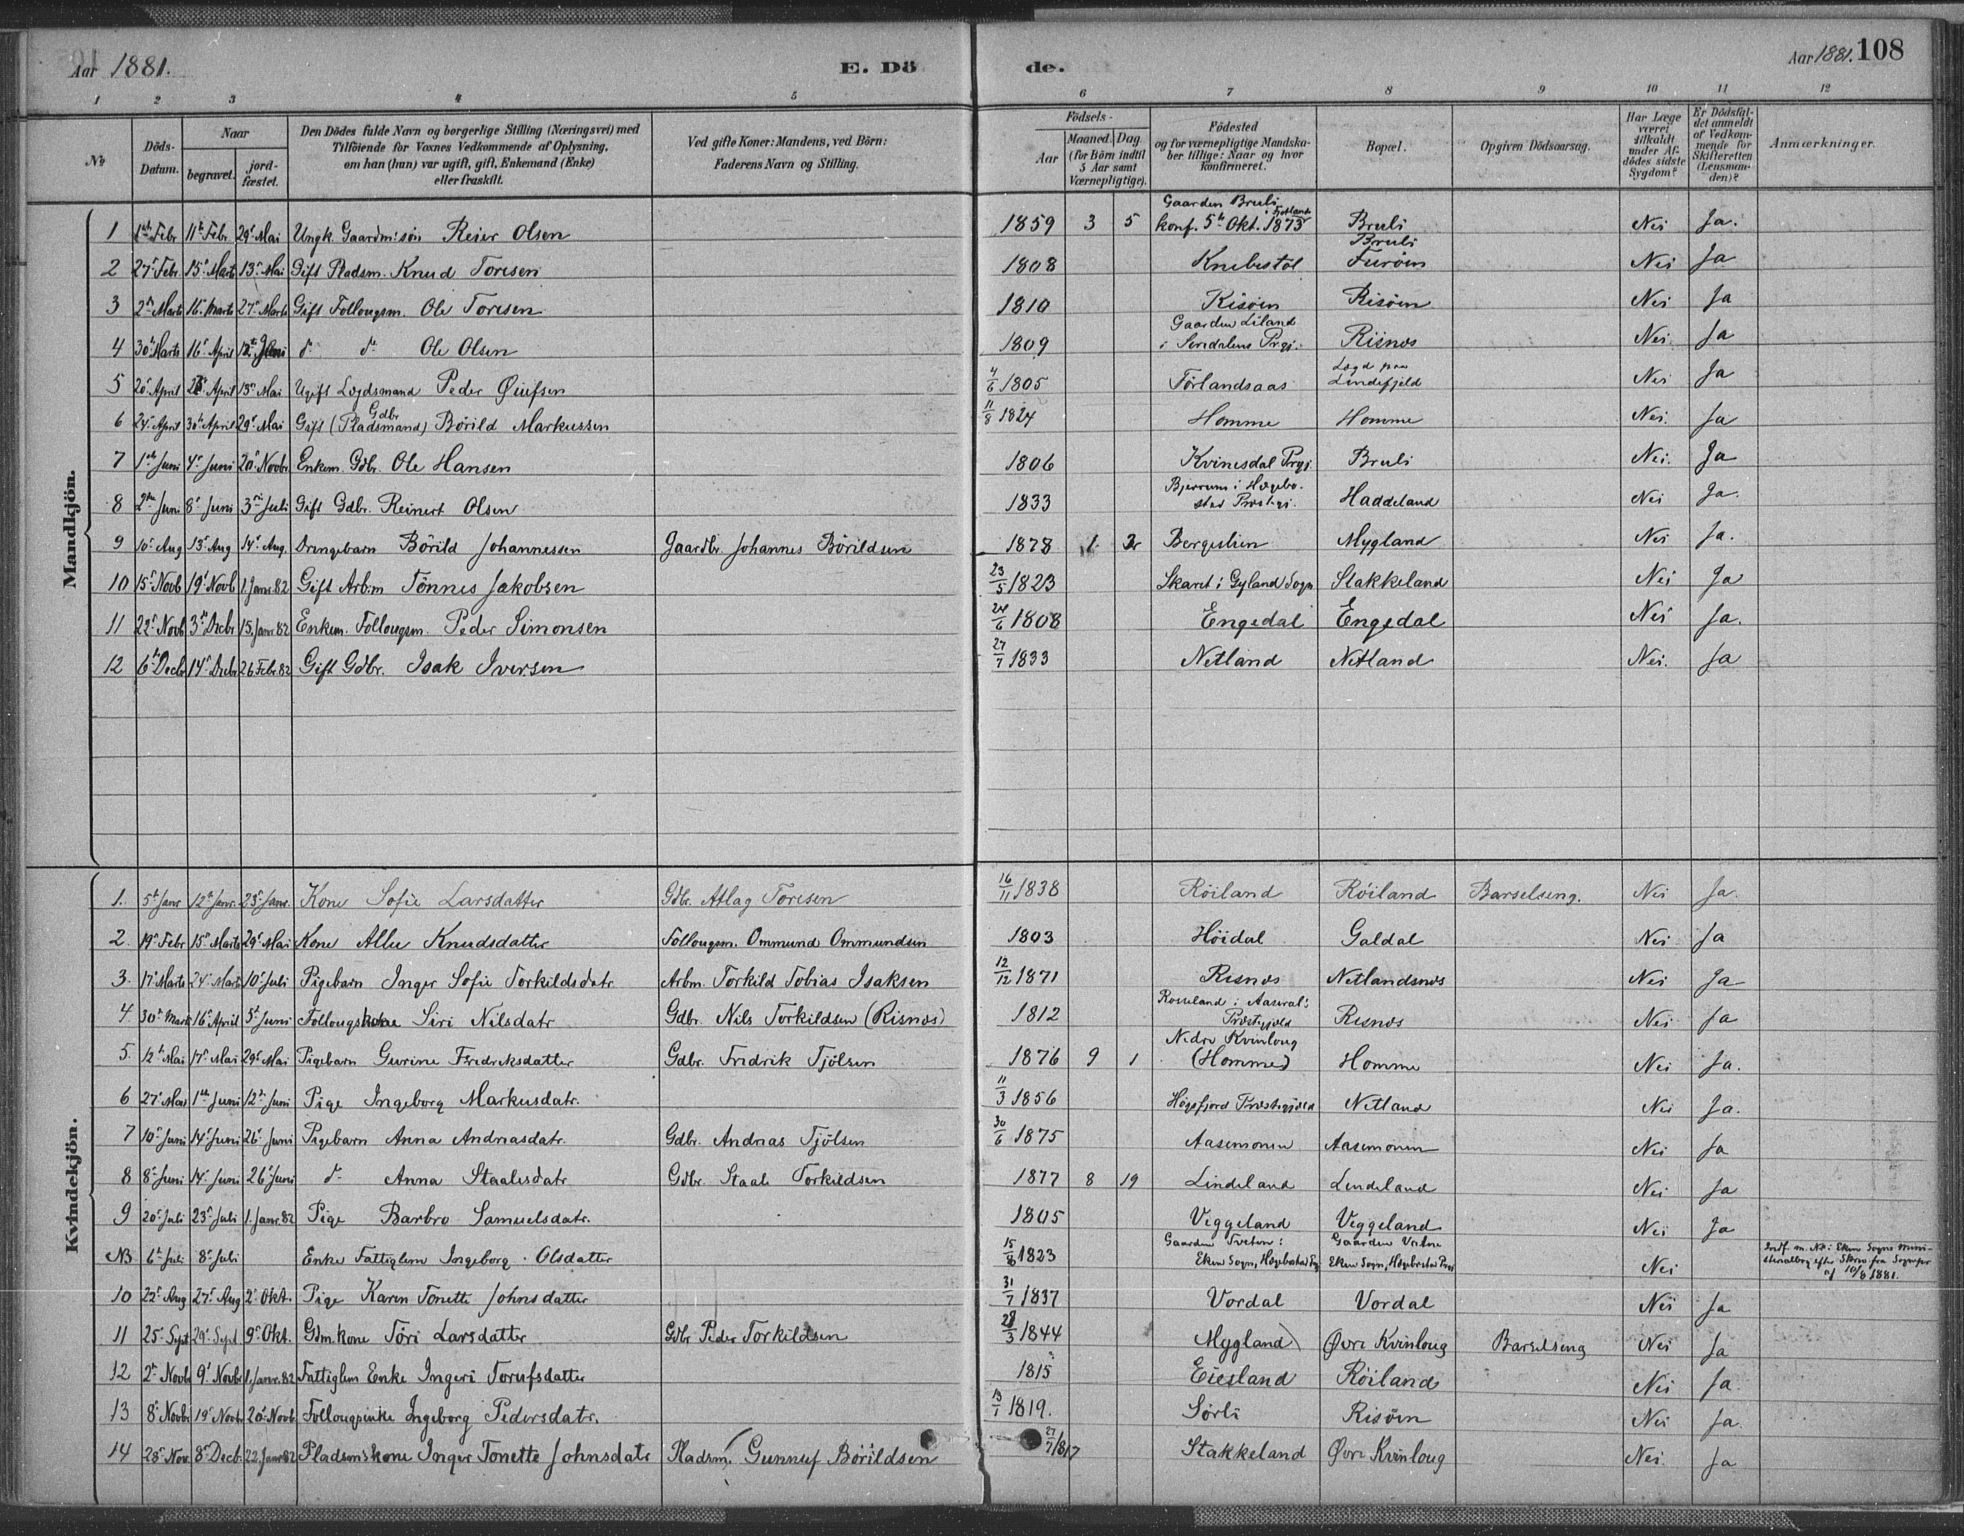 Aar 1881. E. Dö de. Aar 1881. 108
1 2 3 4 5 6 7 8 9 10 11 12
No Döds-Datum. Naar begravet. jordfæstet. Den Dödes fulde Navn og borgerlige Stilling (Næringsvei) med Tilföiende for Voxnes Vedkommende af Oplysning, om han (hun) var ugift, gift, Enkemand (Enke) eller fraskilt. Ved gifte Koner: Mandens, ved Börn: Faderens Navn og Stilling. Födsels- Aar Maaned. Dag. (for Börn indtil 5 Aar samt Værnepligtige). Födested og for værnepligtige Mandskaber tillige: Naar og hvor konfirmeret. Bopæl. Opgiven Dödsaarsag. Har Læge været tilkaldt under Afdödes sidste Sygdom? Er Dödsfaldet anmeldt af Vedkommende for Skifteretten (Lensmanden)? Anmærkninger.
Mandkjön.
1 1ste Febr 11te Febr 29de Mai Ungk. Gaardm.søn Reier Olsen 1859 3 5 Gaarden Bruli i Fjotland konf. 5te Okt. 1873 Bruli Nei Ja.
2 27de Febr. 15de Marts 13de Mai Gift Pladsm. Knud Toresen 1808 Knibestöl Bruli Furöen Nei Ja
3 2den Marts 16de Marts 27de Marts Gift Follougsm. Ole Toresen 1810 Risöen Risöen Nei Ja
4 30te Marts 16de April 12te Juni do do Ole Olsen 1809 Gaarden Liland i Siredalens Prgj. Risnæs Nei Ja
5 20de April 26de April 13de Mai Ugift Lægdsmand Peder Øiufsen 4/6 1805 Törlandsaas Lægd paa Lindefjeld Nei Ja
6 24de April 30te April 29de Mai Gift (Pladsmand) Gdbr Börild Markussen 11/8 1824 Homme Homme Nei. Ja
7 1ste Juni 4de Juni 20de Novbr Enkem. Gdbr. Ole Hansen 1806 Kvinesdal Prgj. Bruli Nei. Ja
8 2den Juni 8de Juni 3die Juli Gift Gdbr. Reinert Olsen 1833 Bjerrum i Hægebostad Præstegj. Haddeland Nei Ja.
9 10de Aug 13de Aug 14de Aug. Drengebarn Börild Johannessen Gaardbr. Johannes Börildsen 1878 1 2 Bergelien Mygland Nei Ja.
10 15de Novb 19de Novb 1. Janr. 82 Gift Arb.m Tönnes Jakobsen 23/5 1823 Skaret i Gyland Sogn Stakkeland Nei Ja
11 22de Novb 3die Decbr 15. Janr 82 Enkem. Follougsm. Peder Simonsen 24/6 1808 Engedal Engedal Nei Ja.
12 6te Decbr 14de Decbr 26 Febr. 82 Gift Gdbr. Isak Iversen 27/7 1833 Netland Netland Nei. Ja
Kvindekjön.
1. 5te Janr 12te Janr. 23de Janr. Kone Sofie Larsdatter Gdbr. Atlag Toresen 16/11 1838 Röiland Röiland Barselseng. Nei Ja.
2. 19de Febr 15de Marts 29de Mai Kone Allu Knudsdatter Follougsm. Ommund Ommundsen 1803 Höidal Galdal Nei Ja
3. 17de Marts 24de Marts 10de Juli Pigebarn Inger Sofie Torkildsdatr Arbm. Torkild Tobias Isaksen 12/12 1871 Risnæs Netlandsnæs Nei Ja
4 30te Marts 16de April 5te Juni Follougskone Siri Nilsdatr Gdbr. Nils Torkildsen (Risnæs) 1812 Rosseland i Aaserals Præstegjeld Risnæs Nei Ja
5. 12te Mai 17de Mai 29de Mai Pigebarn Gurine Fredriksdatter Gdbr. Fredrik Tjölsen 1876 9 1 Nedre Kvinloug (Homme) Homme Nei Ja.
6 27de Mai 1ste Juni 12te Juni Pige Ingeborg Markusdatr. 11/3 1856 Högsfjord Præstegjeld Netland Nei Ja.
7 10de Juni 14de Juni 26de Juni Pigebarn Anna Andreasdatr. Gdbr. Andreas Tjölsen 30/6 1875 Aasemoren Aasemoren Nei Ja
8 8de Juni 14de Juni 26de Juni do Anna Staalesdatr Gdbr. Staale Torkildsen 1877 8 19 Lindeland Lindeland Nei Ja
9 20de Juli 23de Juli 1. Janr. 82 Pige Barbro Samuelsdatr. 1805 Veggeland Veggeland Nei Ja
NB 6te Juli 8de Juli Enke Fattiglem Ingeborg Olsdatter 15/8 1823 Gaarden Tveten i Eken Sogn, Hægebostad Prg Gaarden Eken Sogn, Hægebostad Præst Nei Indf. m. No i Eken Sogns Ministerialbog efter Skriv. fra Sognepr af 10/8 1881.
10 22de Aug 27de Aug 2den Okt. Pige Karen Tonette Johnsdatter 31/7 1837 Vordal Vordal Nei Ja
11 25de Sept 29de Sept 9de Okt. Gdm.kone Töri Larsdatter Gdbr Peder Torkildsen 28/3 1844 Mygland Øvre Kvinloug Barselseng Nei Ja
12 2den Novbr 9de Novbr 1. Janr. 82 Fattiglem Enke Ingeri Torufsdatter 1815 Eiesland Röiland Nei Ja.
13 8de Novbr 19de Novbr 20de Novb Follougsenke Ingeborg Pedersdatr. 13/1 1819. Sörli Risöen Nei Ja.
14 28de Nov. 8de Decb. 22 Janr 82 Pladsmskone Inger Tonette Johnsdatr Pladsm. Gunnuf Böriildsen 27/7 1817 Stakkeland Øvre Kvinloug Nei. Ja